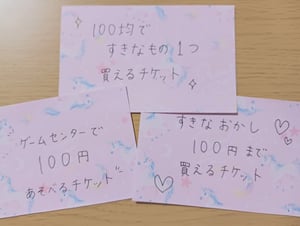 100均で
すきなもの1つ
買えるチケット
ゲームセンターで
100円
あそべるチケット
すきなおかし
100円まで
買えるチケット